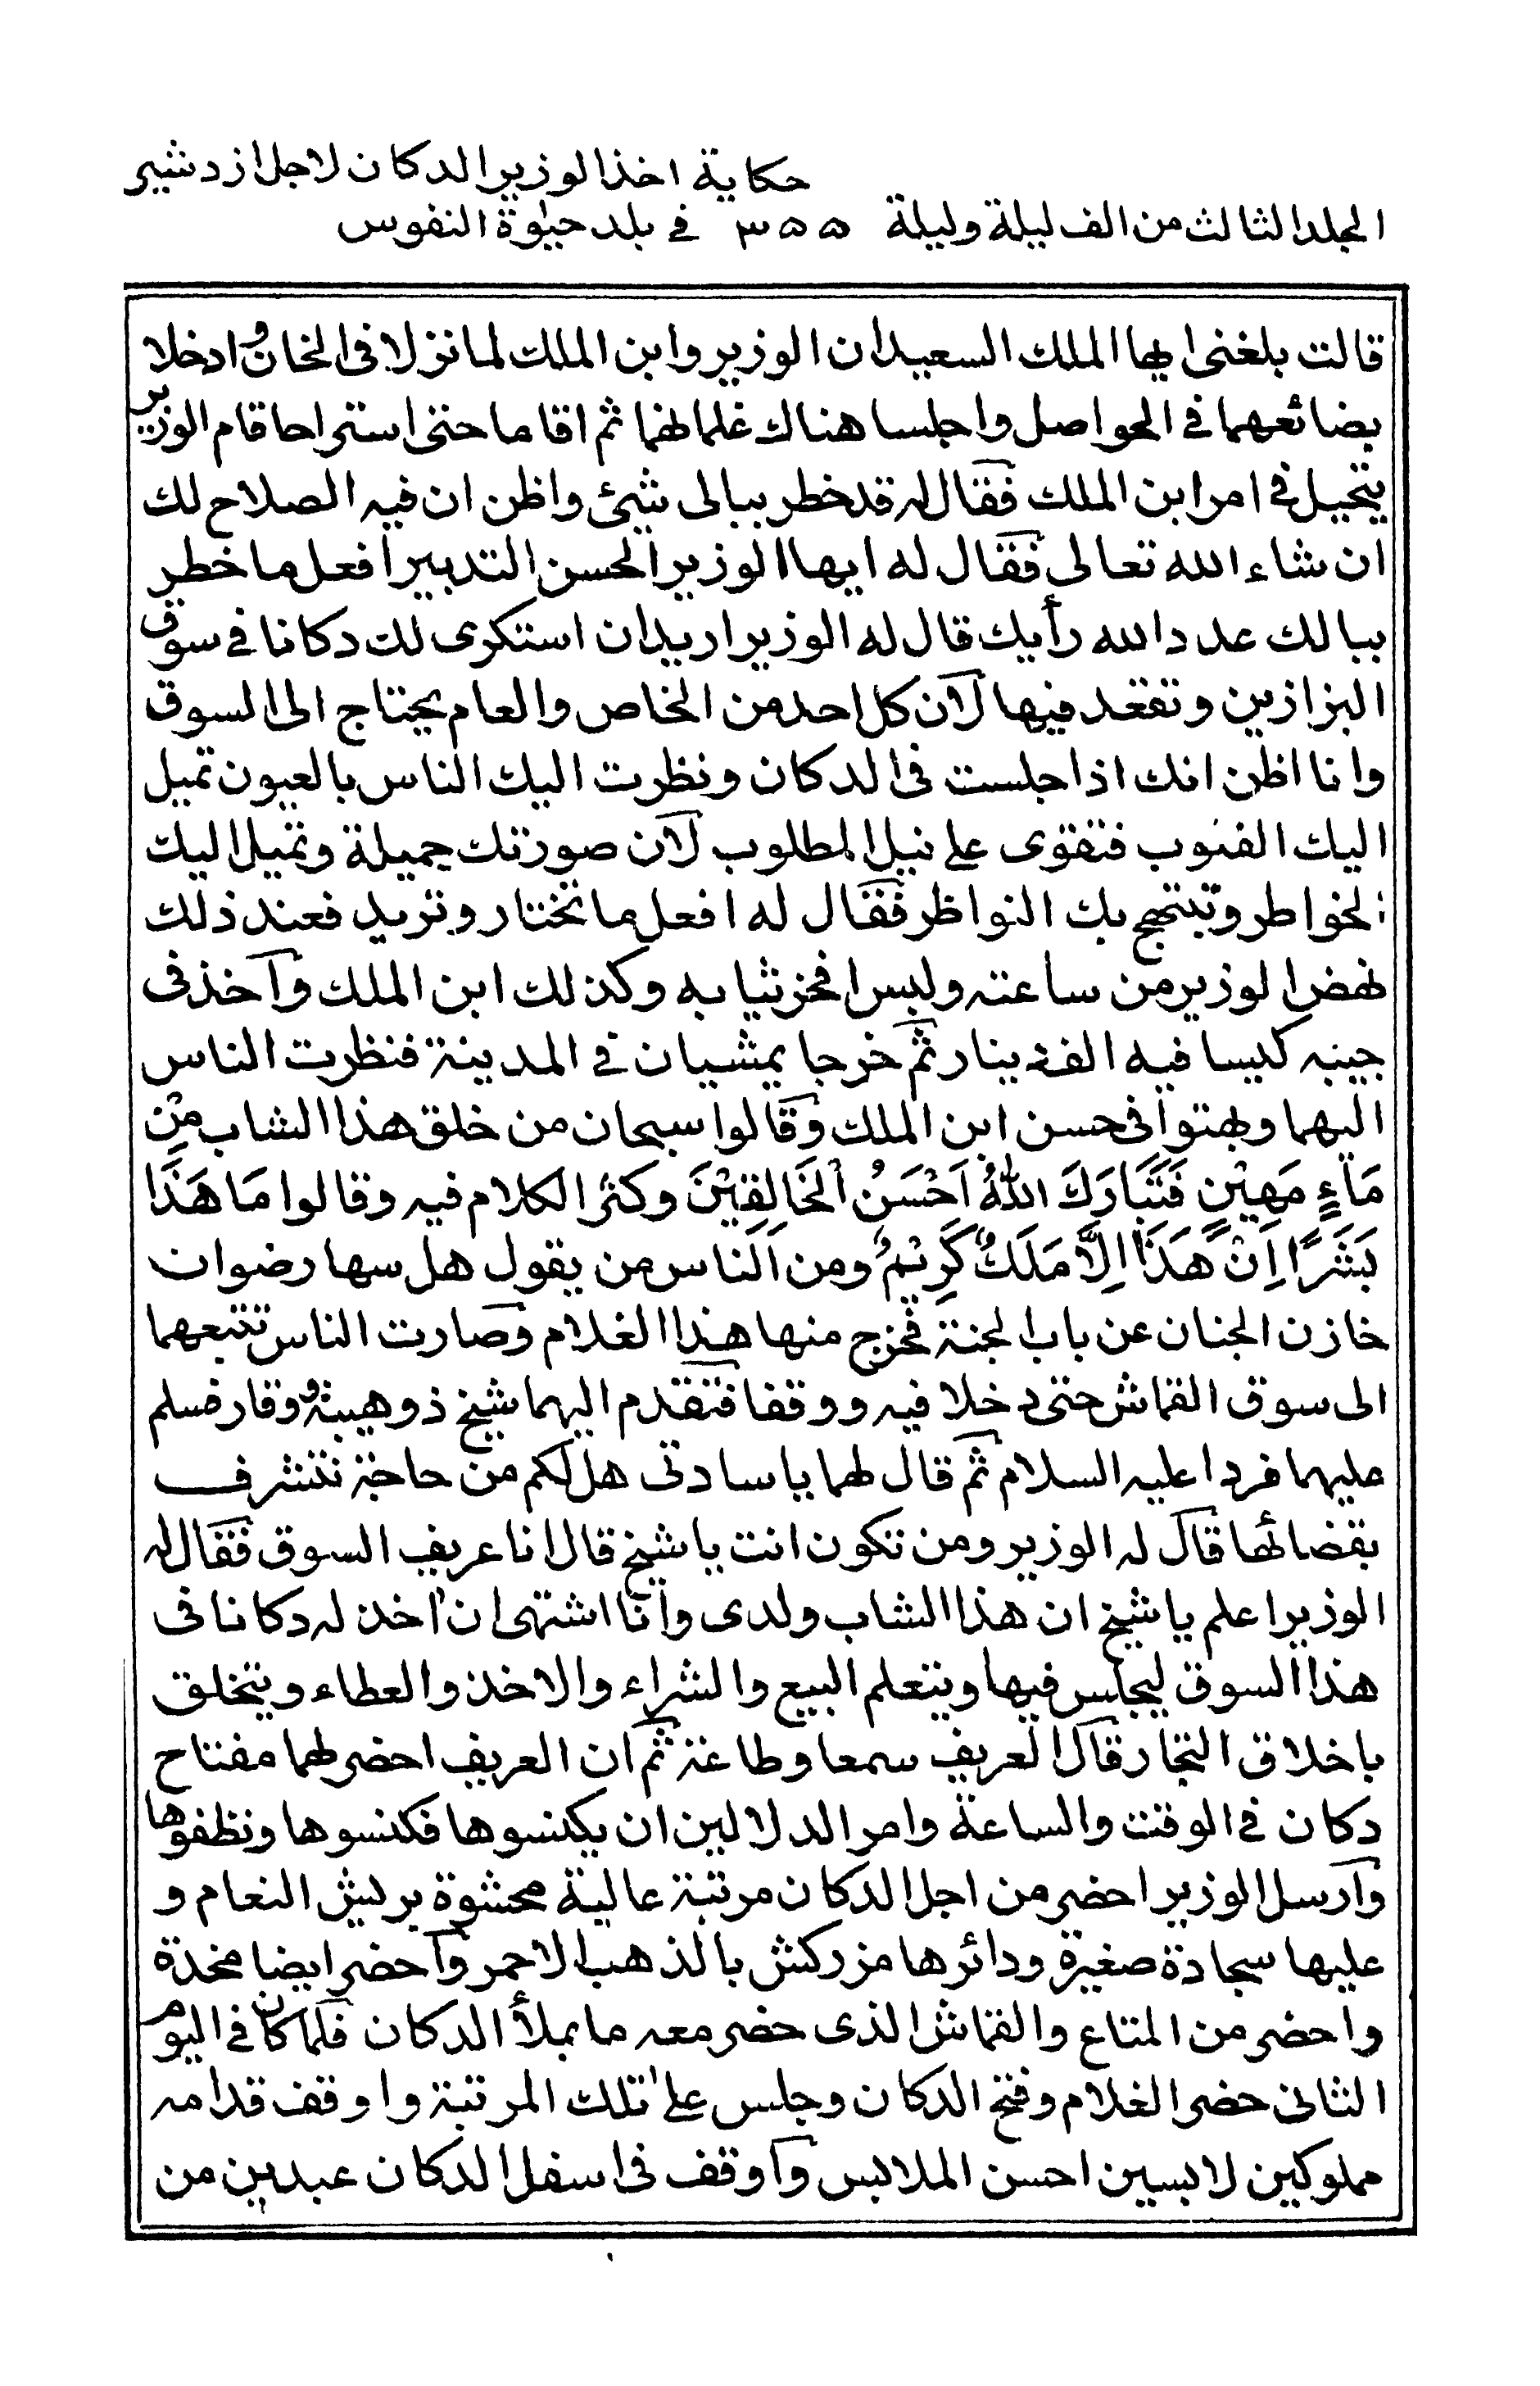 حكاية اخذ الوزير الدكان لاجل ازدشير
المجلد الثالث من الف ليلة وليلة ٣٥٥ في بلد حيوة النفوس
قالت بلغني ايها الملك السعيد ان الوزير وابن الملك لما نزلا في الخان وادخلا
بضائعهما في الحواصل واجلسا هناك غلمانهما ثم اقاما حتى استراحا قام الوزير
يتحيل في امر ابن الملك فقال له قد خطر ببالى شيئ واظن ان فيه الصلاح لك
ان شاء الله تعالى فقال له ايها الوزير الحسن التدبير افعل ما خطر
ببالك عدد الله رأيك قال له الوزير اريد ان استكرى لك دكانا في سوق
البزازين وتقعد فيها لان كل احد من الخاص والعام يحتاج الى السوق
وانا اظن انك اذا جلست في الدكان ونظرت اليك الناس بالعيون تميل
اليك القلوب فتقوى على نيل المطلوب لان صورتك جميلة وتميل اليك
الخواطر وتبتهج بك النواظر فقال له افعل ما تختار وتريد فعند ذلك
نهض الوزير من ساعته ولبس افخر ثيابه وكذلك ابن الملك وآخذ في
جيبه كيسا فيه الف دينار ثم خرجا يمشيان في المدينة فنظرت الناس
اليهما وبهتوا في حسن ابن الملك وقالوا سبحان من خلق هذا الشاب مِنْ
مَاءٍ مَهِيْنٍ فَتَبَارَكَ اللهُ اَحْسَنُ اْلخَالِقِيْنَ وكثر الكلام فيه وقالوا مَا هَذَا
بَشَرًا اِنْ هَذَا اِلَّا مَلَكٌ كَرِيْمٌ ومن الناس من يقول هل سها رضوان
خازن الجنان عن باب الجنة فخرج منها هذا الغلام وصارت الناس تتبعهما
الى سوق القماش حتى دخلا فيه ووقفا فتقدم اليهما شيخ ذو هيبة ووقار فسلم
عليهما فردا عليه السلام ثم قال لهما يا سادتى هل لكم من حاجة نتشرف
بقضائها قال له الوزير ومن تكون انت يا شيخ قال انا عريف السوق فقال له
الوزير اعلم يا شيخ ان هذا الشاب ولدى وانا اشتهى ان اخذ له دكانا في
هذا السوق ليجلس فيها ويتعلم البيع والشراء والاخذ والعطاء ويتخلق
باخلاق التجار قال العريف سمعا وطاعة ثم ان العريف احضر لهما مفتاح
دكان في الوقت والساعة وامر الدلالين ان يكنسوها فكنسوها ونظفوها
وآرسل الوزير احضر من اجل الدكان مرتبة عالية محشوة بريش النعام و
عليها سجادة صغيرة ودائرها مزركش بالذهب الاحمر وآحضر ايضا مخدة
واحضر من المتاع والقماش الذى حضر معه ما يملأ الدكان فلما كان في اليوم
الثانى حضر الغلام وفتح الدكان وجلس على تلك المرتبة واوقف قدامه
مملوكين لابسين احسن الملابس وآوقف في اسفل الدكان عبدين من